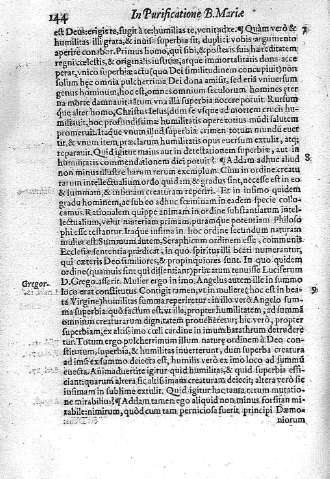 144
In Purificatione B. Mariæ
est Deus: erigis te, fugit à te: humilias te, venit ad te. ¶ Quàm verò &
humilitas illi grata, & inuisa superbia sit, duplici vobis argumento
aperire conabor. Primus homo, qui sibi, & posteris suis hæreditatem
regni cœlestis, & originalis iustitiæ, atque immortalitatis donis acce
perat, vnico superbiæ actu (quo Dei similitudinem concupiuit) non
solùm hæc omnia pulcherrima Dei dona amisit, sed etiā vniuersum
genus hominum, hoc est, omnes omnium seculorum homines æter
na morte damnauit: tātum vna illa superbia nocere potuit. Rursum
alter homo, Christus Iesus, dum se vsque ad mortem crucis hu-
miliauit, hoc profundissimæ humilitatis opere totius mūdi salutem
promeruit. Itaque vnum illud superbiæ crimen totum mundū euer
tit, & vnum item, præclarum humilitatis opus euersum extulit, atq;
reparauit. Quid igitur maius aut in detestationem superbiæ, aut in
humilitatis commendationem dici potuit? ¶ Addam adhuc aliud
non minus illustre harum rerum exemplum. Cùm in ordine creatu
rarum intellectualium, ordo quidam, & gradus sint, necesse est in eo
& summam, & infimam creaturam reperiri. Et in infimo quidem
gradu hominem, ac sub eo adhuc fœminam in eadem specie collo-
camus. Rationalem quippe animam in ordine substantiarum intel-
lectualium, velut materiam primam, puramque potentiam Philoso
phi esse testantur. Itaque infima in hoc ordine secundum naturam
mulier est. Summum autem, Seraphicum ordinem esse, communis
Ecclesiæ sententia prædicat, in quo spiritus illi beati numerantur,
qui cæteris Deo similiores, & propinquiores sunt. In quo quidem
ordine (quamuis sint qui dissentiant) priùs tamen fuisse Luciferum
Gregor.
D. Grego. asserit. Mulier ergo in imo, Angelus autem ille in summo
loco erat constitutus. Contigit tamen, vt in muliere (hoc est in bea-
ta Virgine) humilitas summa reperiretur: in illo verò Angelo sum-
ma superbia: quo factum est, vt illa, propter humilitatem, ad summā
omnium creaturarum dignitatem proueheretur; hic verò, propter
superbiam, ex altissimo cœli cardine in imum barathrum detrudere
tur. Totum ergo pulcherrimum illum naturæ ordinem à Deo con-
stitutum, superbia, & humilitas inuerterunt, dum superba creatura
ad imū ex summo deiecta est, humilis verò ex imo loco ad summū
euecta. Animaduertite igitur quid humilitas, & quid superbia effi-
ciant: quarum altera sic altissimā creaturam deiecit, altera verò sic
infimam in sublime extulit. Quid igitur hac tanta rerum mutatio-
ne mirabilius? ¶ Addam tamen ego aliquid non minus forsitan mi-
rabile: nimirum, quòd cum tam perniciosa fuerit principi Dæmo-
niorum
7
8
9